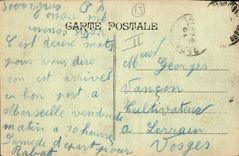 CARTE POSTALE
13
II
C'est deux mots
pour vous dire
con est arrivé
a bon port a
Marseille vendredi
matin a 10 heures
Samedi départ pour
Rabat
Mr Georges
Vançon
Cultivateur
a Lerrain
Vosges